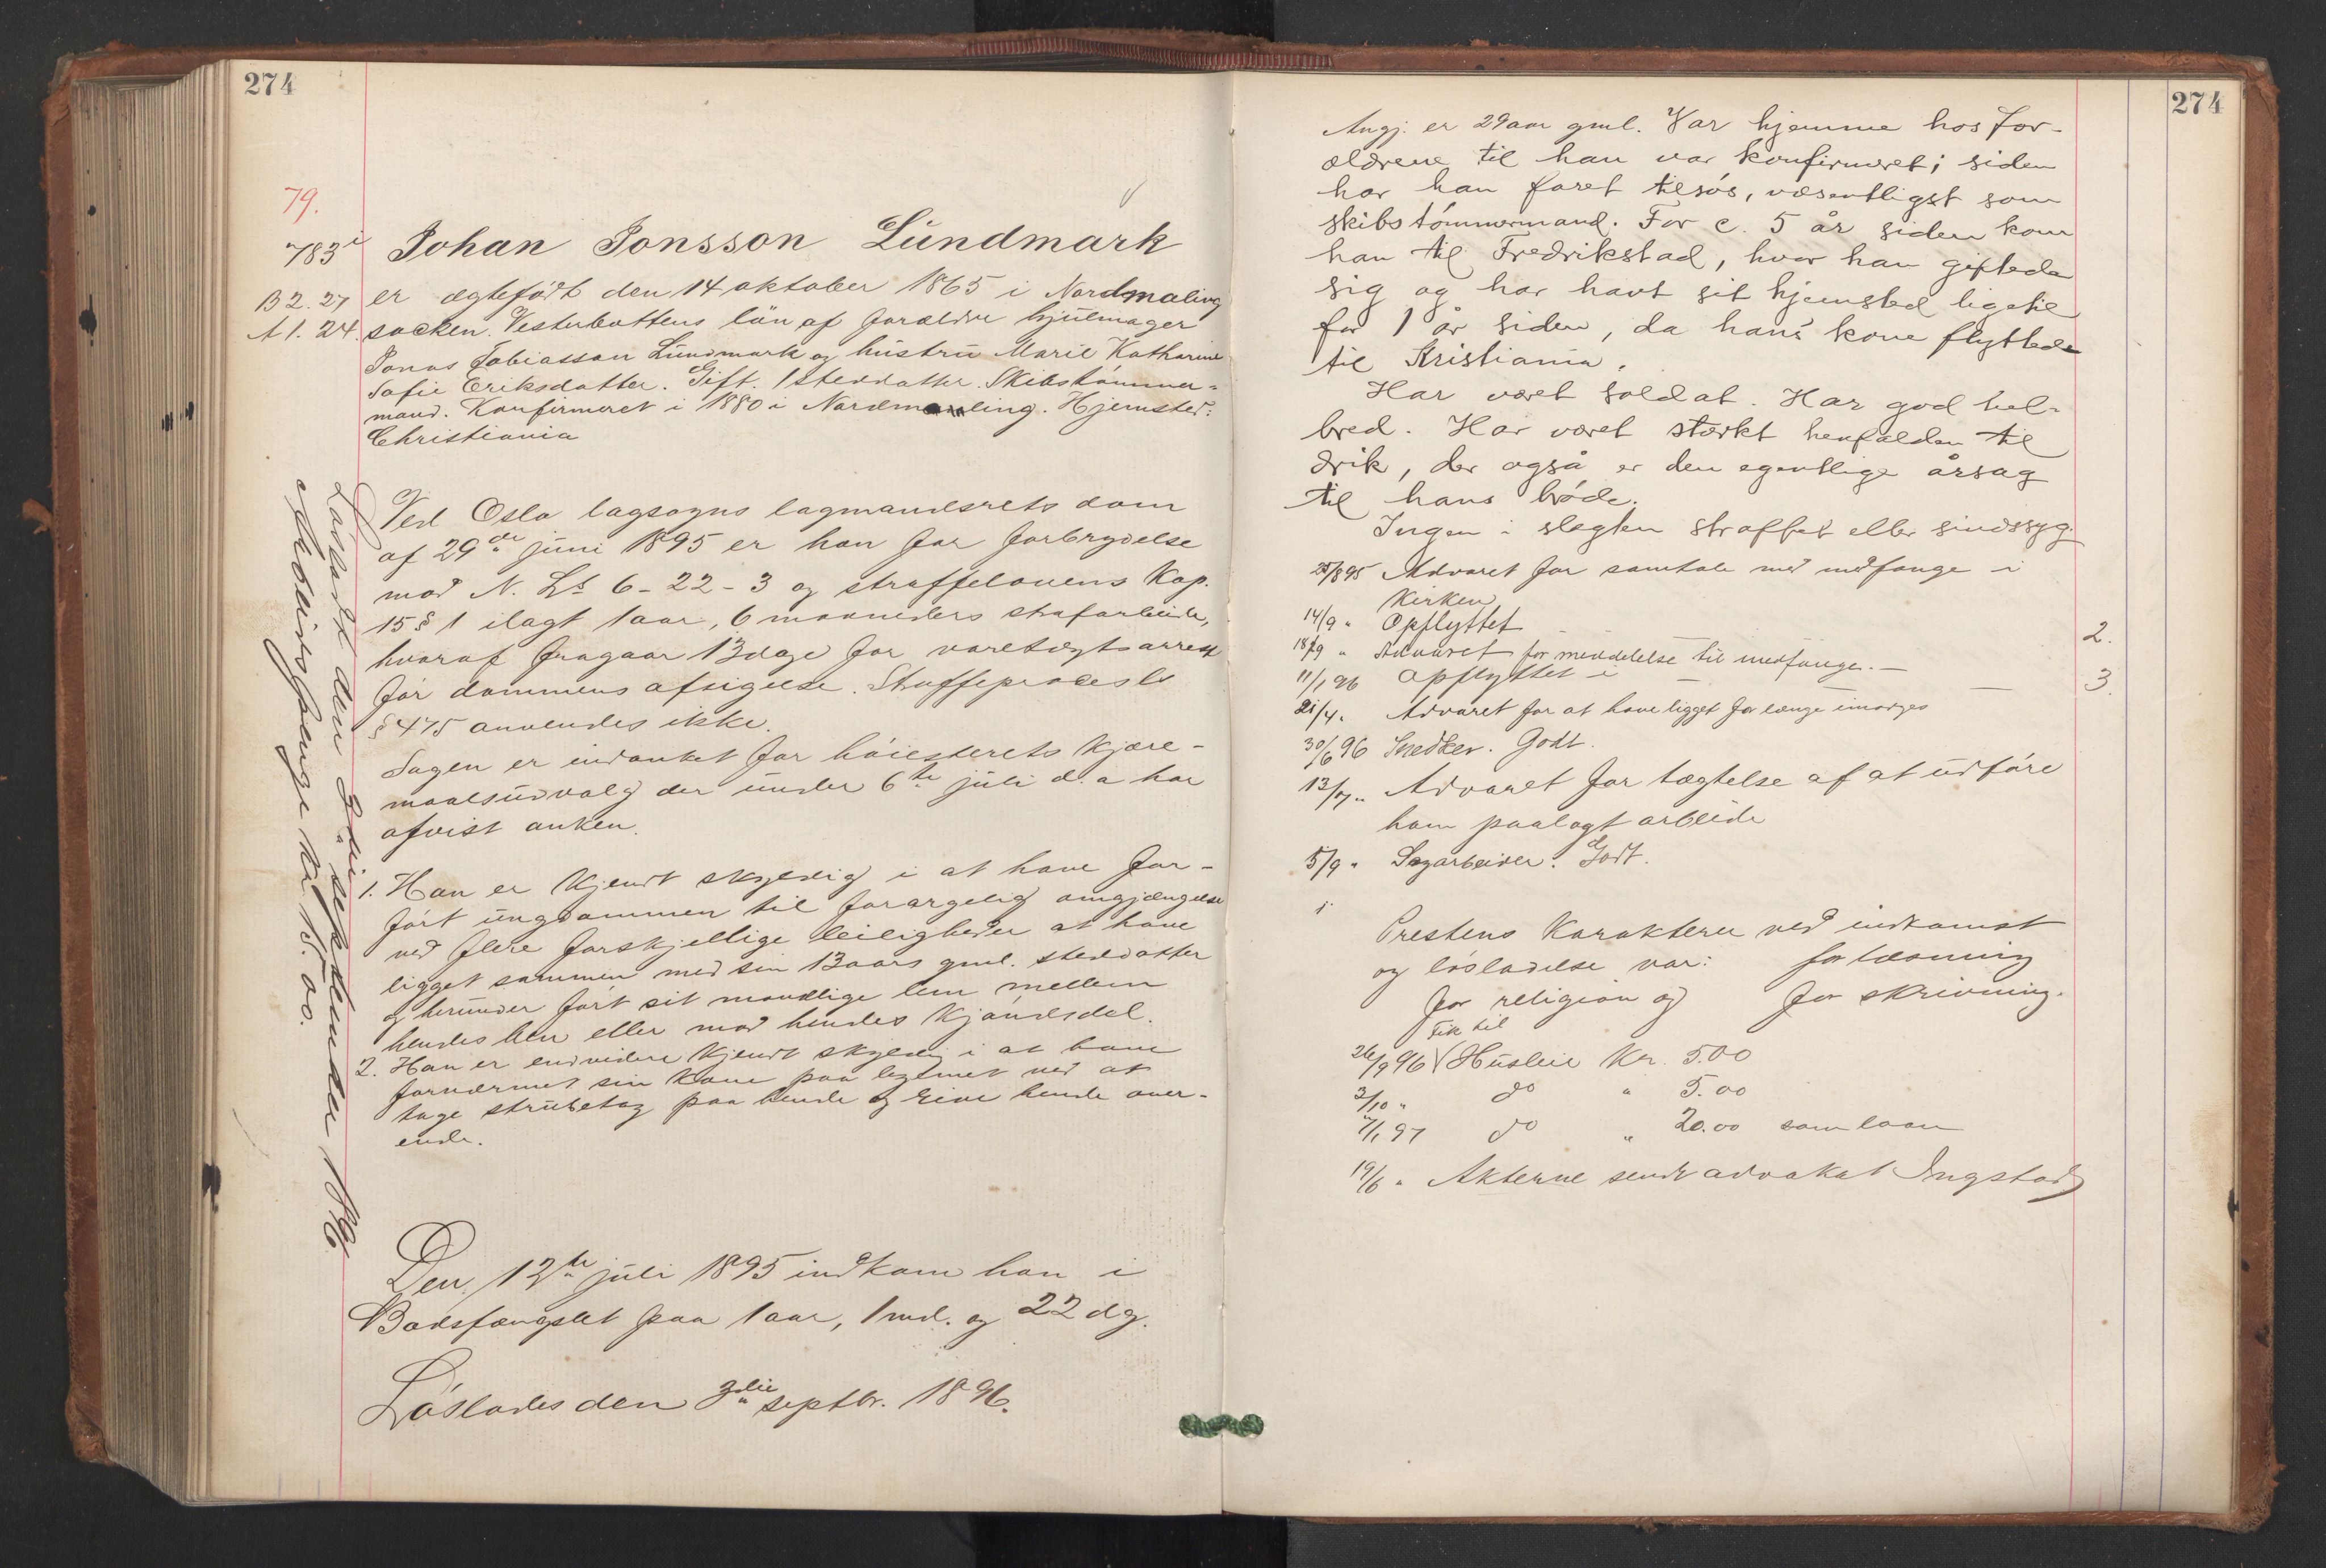 274
79.
783 i
B 2. 27
A 1. 24.
Johan Jonsson Lundmark
er ægtefødt den 14 oktober 1865 i Nordmaling
socken. Vesterbottens län af forældre hjulmager
Jonas Tobiasson Lundmark og hustru Marie Katharine
Sofie Eriksdatter. Gift. 1 steddatter. Skibstømmer-
mand. Konfirmeret i 1880 i Nordmaling. Hjemsted:
Christiania
Ved Oslo lagsogns lagmandsrets dom
af 29de juni 1895 er han for forbrydelse
mod N. L's 6-22-3 og straffelovens Kap.
15 § 1 ilagt 1 aar, 6 maaneders strafarbeide,
hvoraf fragaar 13 dage for varetægtsarrest
før dommens afsigelse. Straffeprocessls
§ 475 anvendes ikke.
Sagen er indanket for høiesterets Kjære-
maalsudvalg der under 6te juli d. a har
afvist anken.
1. Han er Kjendt skyldig i at have for-
ført ungdommen til forargelig omgjængelse
ved flere forskjellige leiligheder at have
ligget sammen med sin 13 aars gml. steddatter
og herunder ført sit mandlige lem mellem
hendes ben eller mod hendes Kjønsdel.
2. Han er endvidere Kjendt skyldig i at have
fornærmet sin Kone paa legemet ved at
tage strubetag paa hende og rive hende over-
ende.
Den 12te juli 1895 indkom han i
Bodsfængslet paa 1 aar, 1 md. og 22 dg.
Løslades den 3die septbr. 1896.
Løsladt den 3die september 1896.
Arbeidspenge Kr. 15.00.
274
Angj. er 29 aar gml. Var hjemme hos for-
ældrene til han var konfirmeret; siden
har han faret tilsøs, væsentligst som
skibstømmermand. For c. 5 år siden kom
han til Fredrikstad, hvor han giftede
sig og har havt sit hjemsted ligetil
for 1 år siden, da hans kone flyttede
til Kristiania.
Har været soldat. Har god hel-
bred. Har været stærkt henfalden til
drik, der også er den egentlige årsag
til hans bøde.
Ingen i slegten straffet eller sindssyg.
25/8 95 Advaret for samtale med medfange i
Kirken
14/9 " Opflyttet 2.
18/9 " Advaret for meddelelse til medfange. —
11/1 96 Opflyttet i — — 3.
21/4 " Advaret for at have ligget for længe imorges
30/6 96 Snedker. Godt.
13/7 " Advaret for tægtelse af at udføre
ham paalagt arbeide
5/9 " Sagarbeider. Godt.
Prestens Karakterer ved indkomst
og løsladelse var: for læsning
for religion og for skrivning.
Fik til
26/9 96 Husleie Kr. 5.00
3/10 " do " 5.00
7/1 97 do " 20.00 som laan
19/6 " Akterne sendt advokat Ingstad